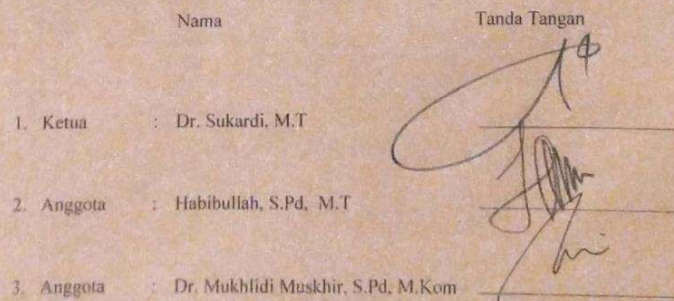 Nama Tanda Tangan
1. Ketua : Dr. Sukardi, M.T
2. Anggota : Habibullah, S.Pd, M.T
3. Anggota : Dr. Mukhlidi Muskhir, S.Pd, M.Kom